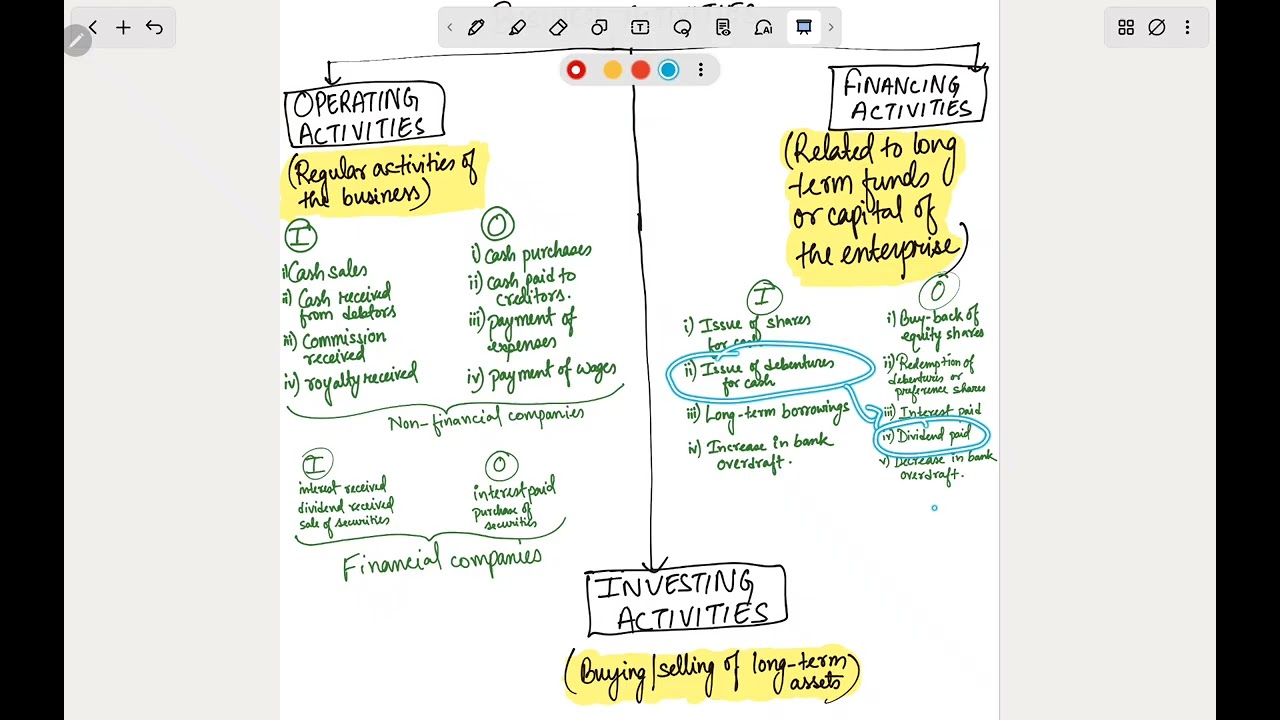 OPERATING
ACTIVITIES
(Regular activities of
the business)
I
i) Cash sales
ii) Cash received
from debtors
iii) Commission
received
iv) royalty received
O
i) Cash purchases
ii) Cash paid to
creditors.
iii) payment of
expenses
iv) payment of wages
Non-financial companies
I
interest received
dividend received
sale of securities
O
interest paid
purchase of
securities
Financial companies
FINANCING
ACTIVITIES
(Related to long
term funds
or capital of
the enterprise)
I
i) Issue of shares
for cash
ii) Issue of debentures
for cash
iii) Long-term borrowings
iv) Increase in bank
overdraft.
O
i) Buy-back of
equity shares
ii) Redemption of
debentures or
preference shares
iii) Interest paid
iv) Dividend paid
v) Decrease in bank
overdraft.
INVESTING
ACTIVITIES
(Buying/selling of long-term
assets)